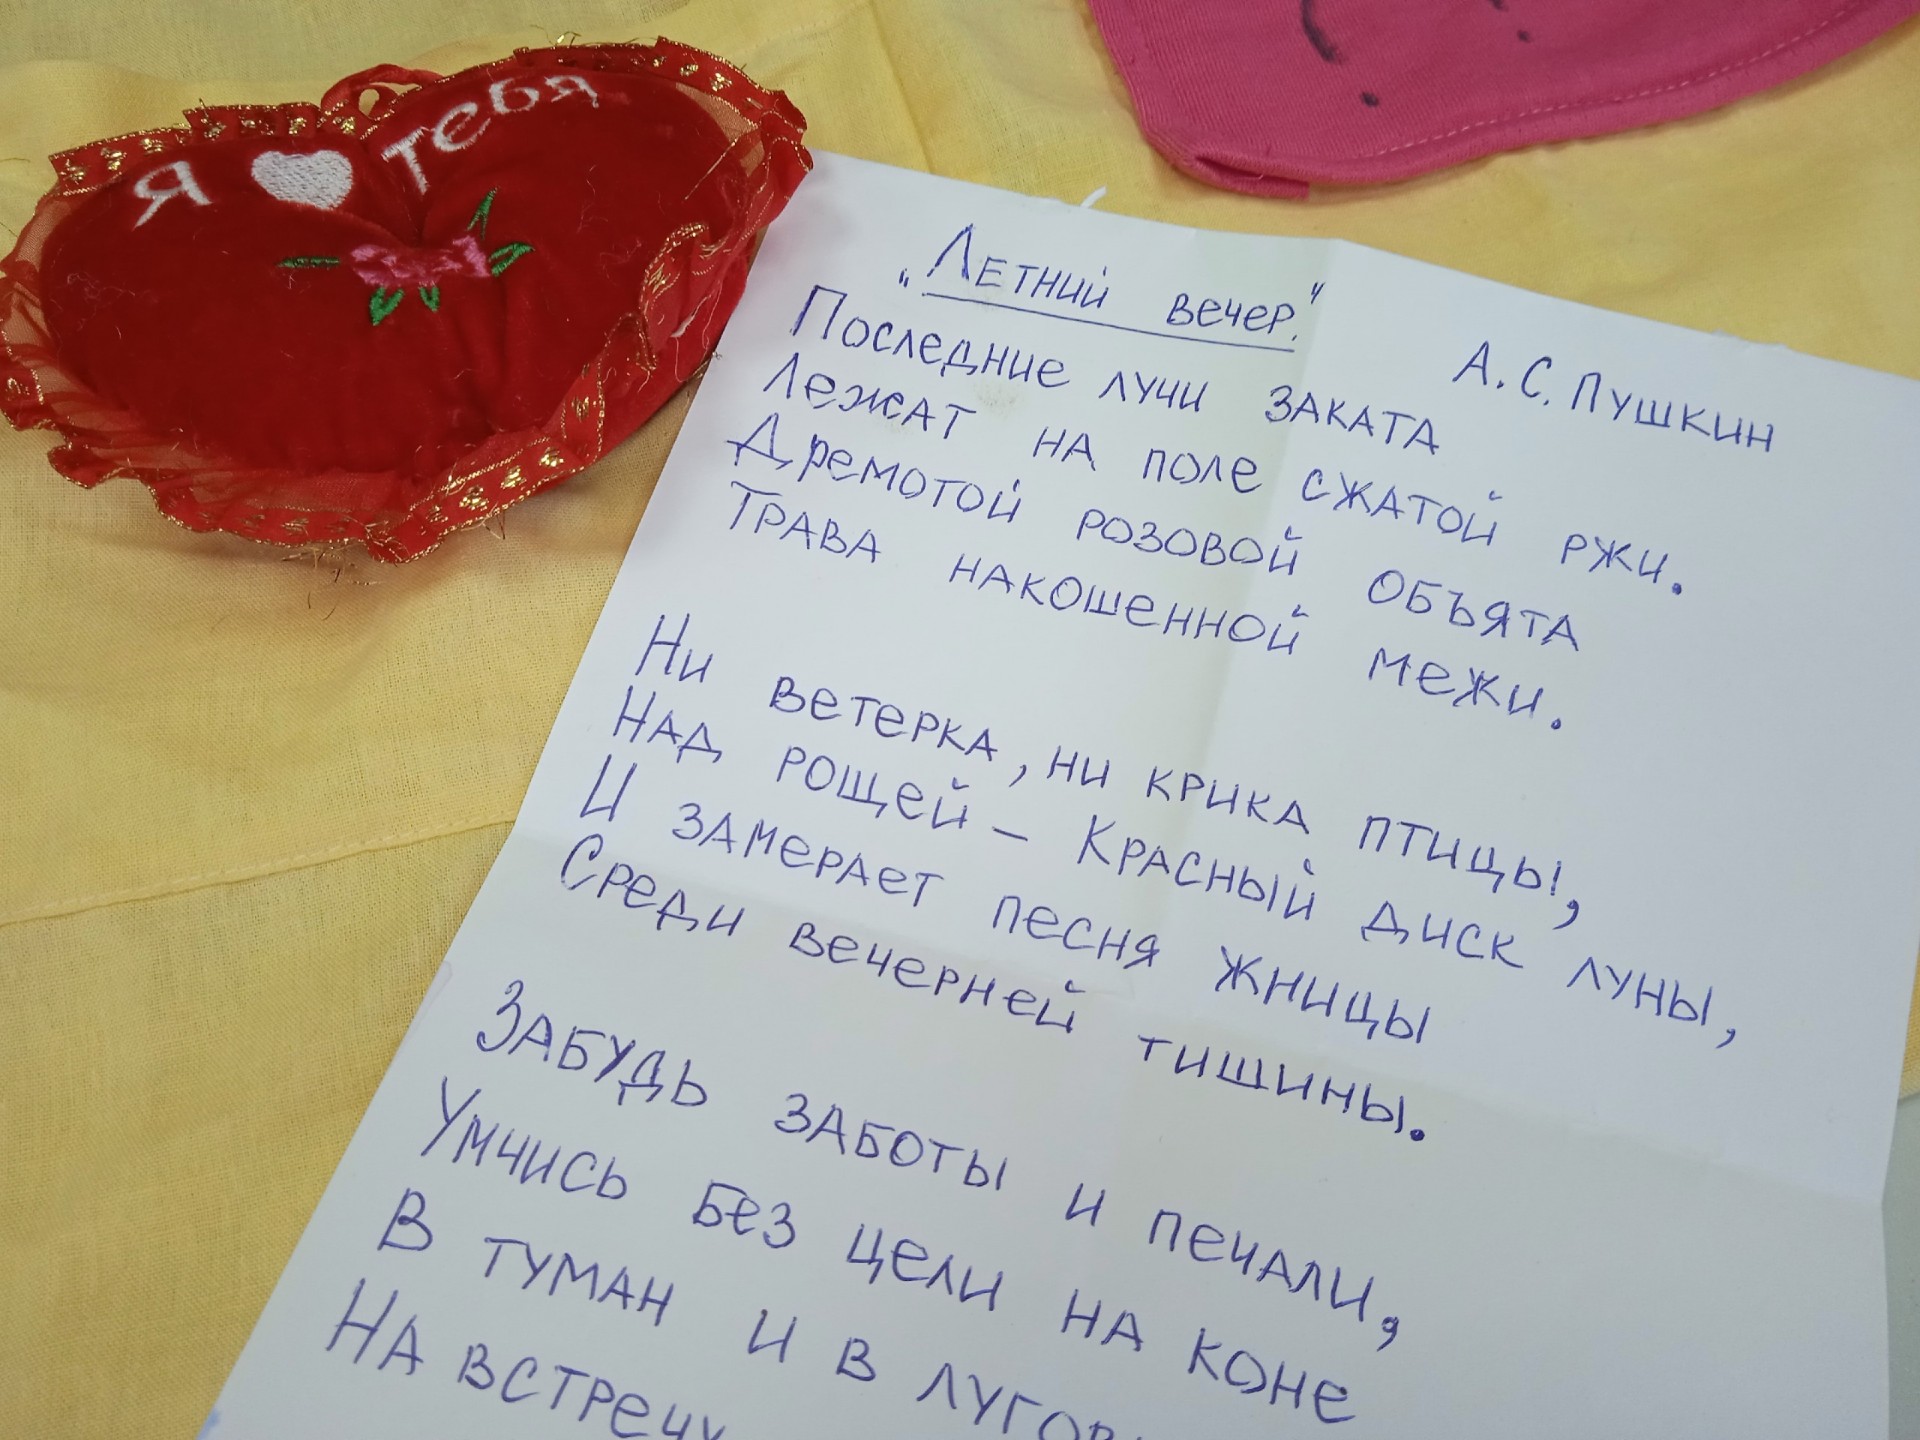 Я тебя
„Летний вечер."
А.С. Пушкин
Последние лучи заката
Лежат на поле сжатой ржи.
Дремотой розовой объята
Трава накошенной межи.
Ни ветерка, ни крика птицы,
Над рощей – Красный диск луны,
И замерает песня жницы
Среди вечерней тишины.
Забудь заботы и печали,
Умчись без цели на коне
В туман и в
На встречу